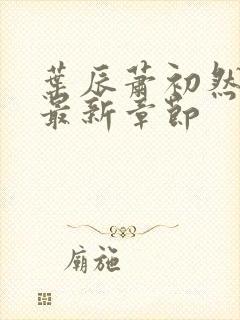 葉辰蕭初然
最新章節
廟施